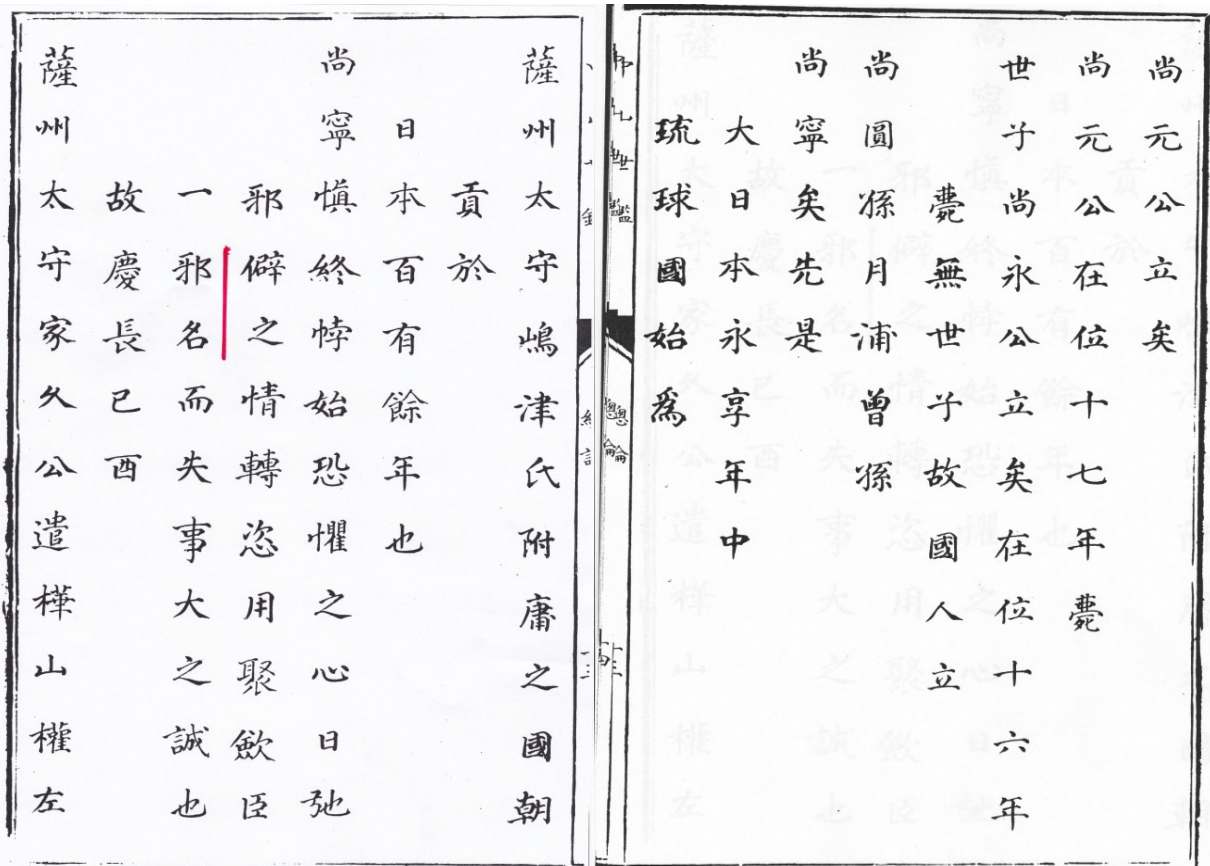 尚元公立矣
尚元公在位十七年薨
世子尚永公立矣在位十六年
薨無世子故國人立
尚圓孫月浦曾孫
尚寧矣先是
大日本永享年中
琉球國始為
總論
十二
薩州太守嶋津氏附庸之國朝
貢於
日本百有餘年也
尚寧慎終悖始恐懼之心日弛
邪僻之情轉恣用聚斂臣
一邪名而失事大之誠也
故慶長己酉
薩州太守家久公遣樺山權左